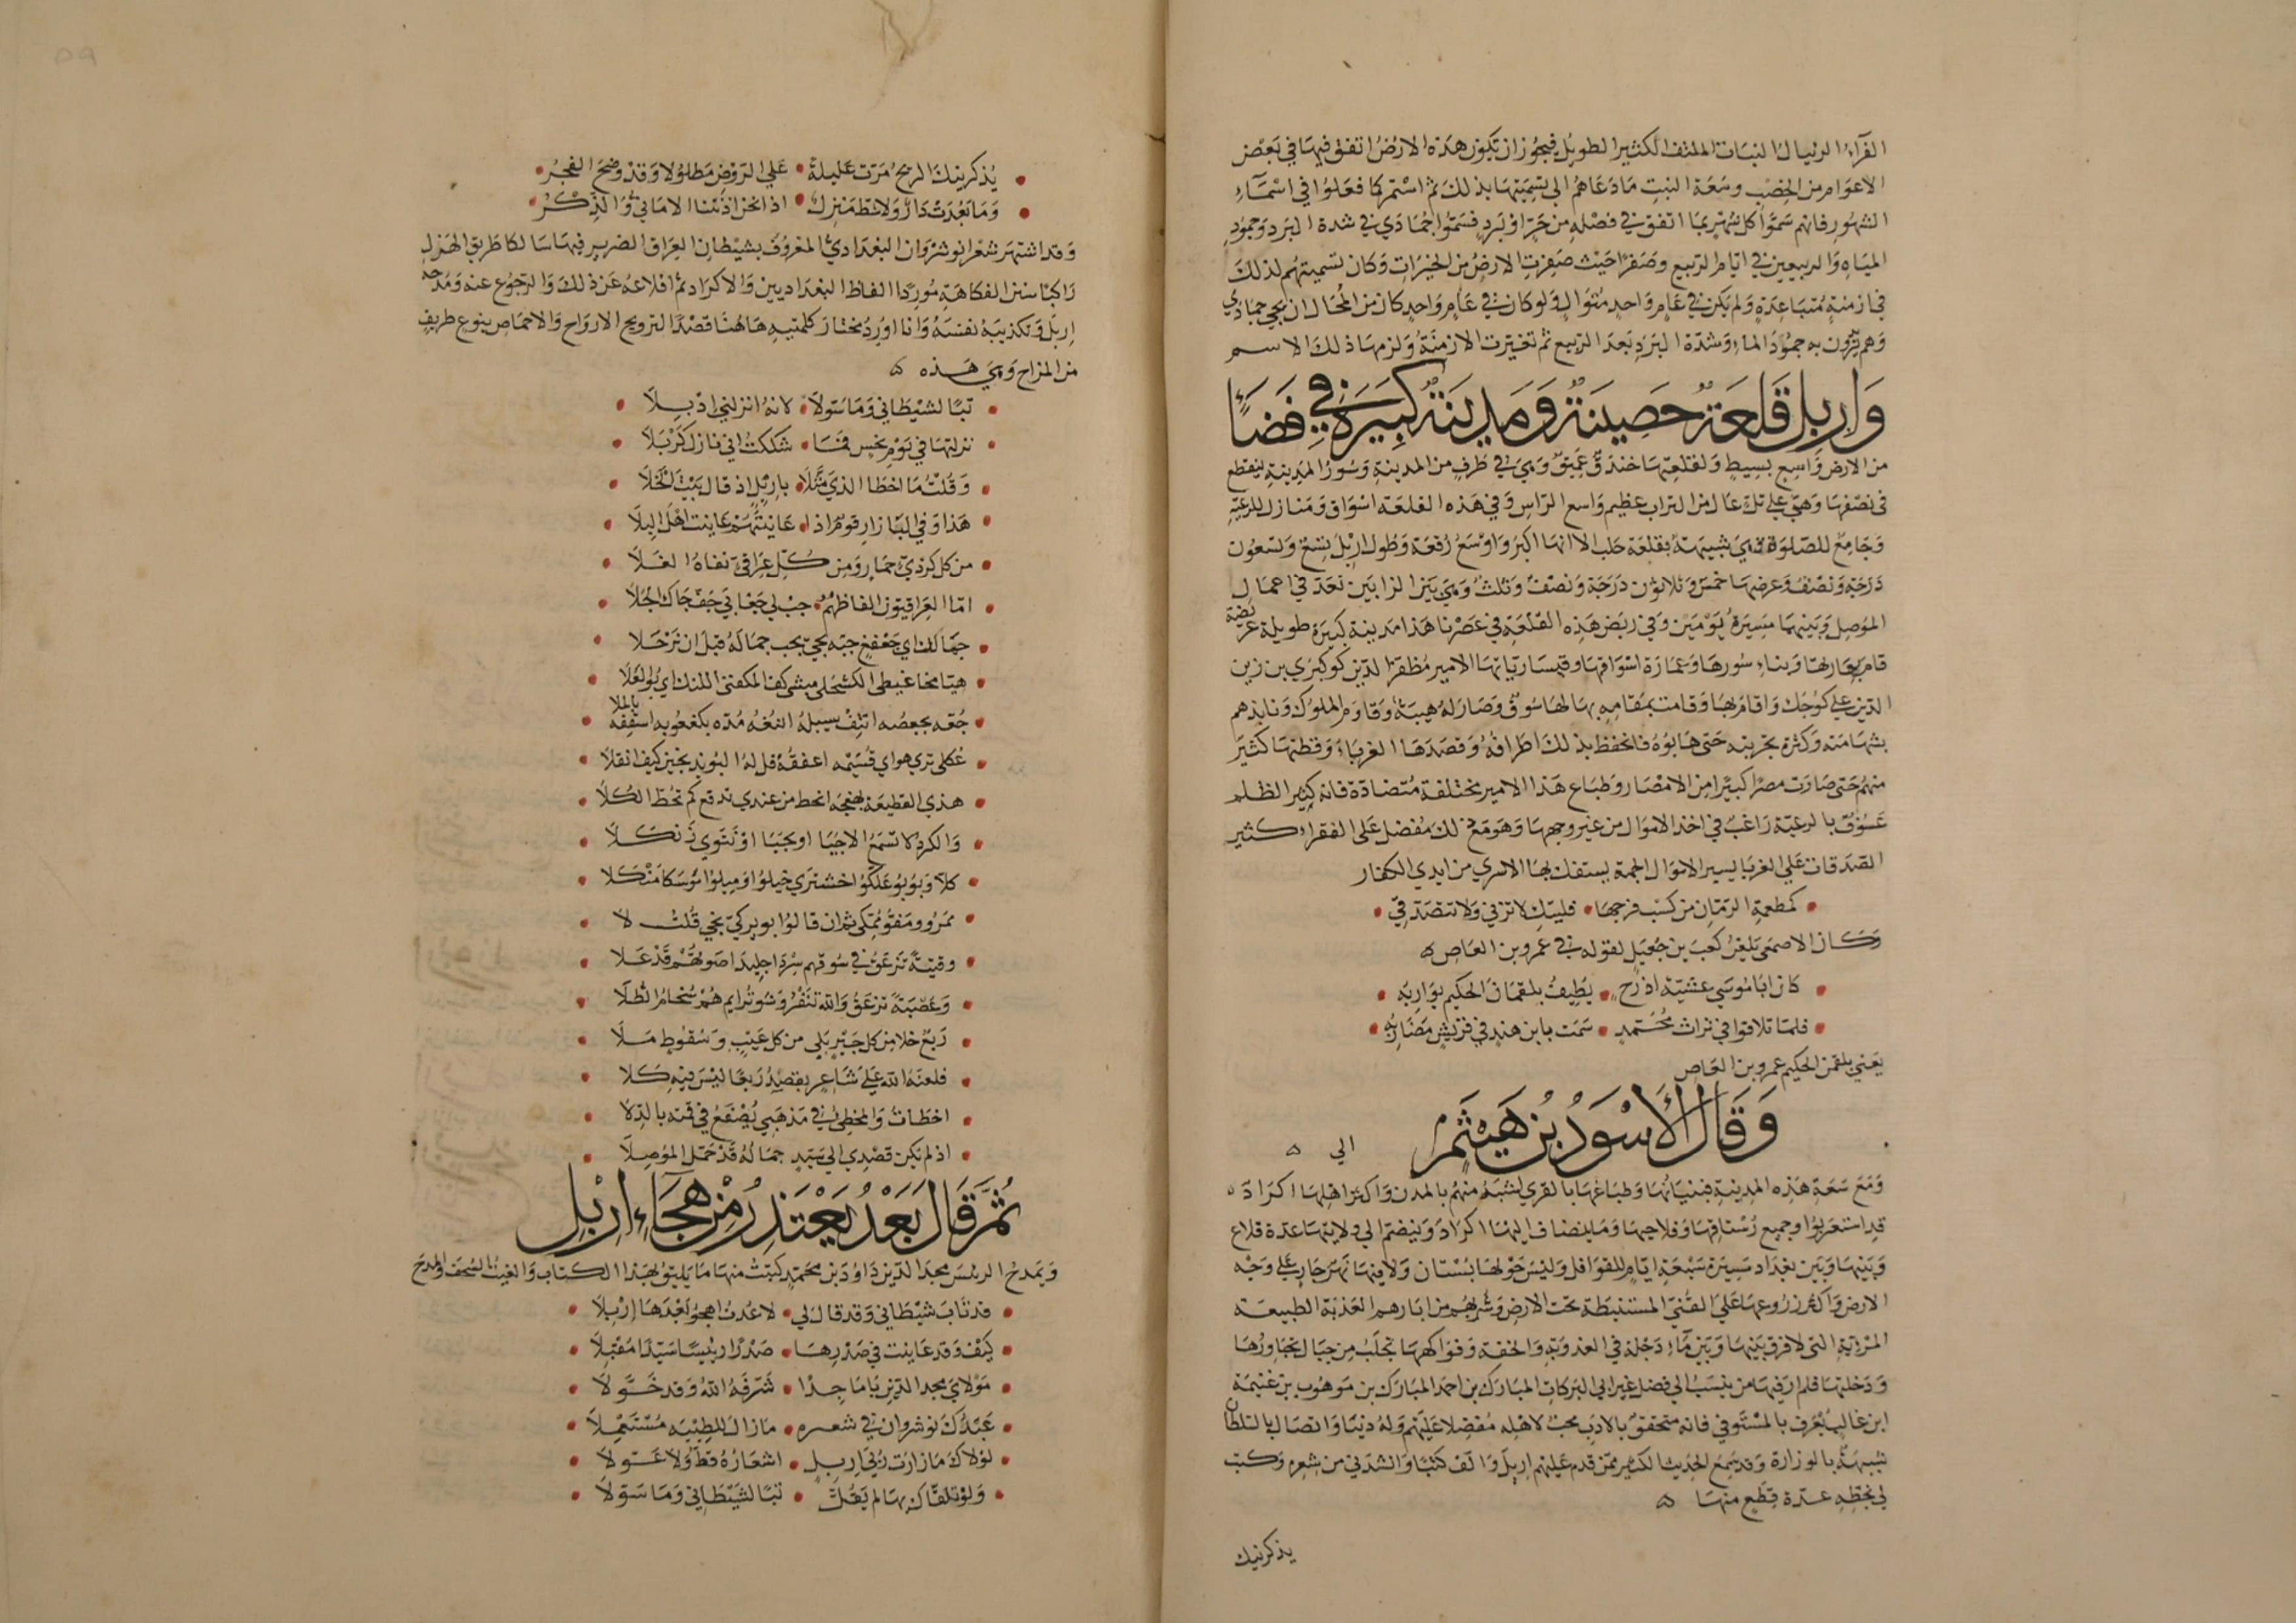 الفرّاء الريبال النبات الملتف الكثير الطويل فيجوز ان تكون هذه الارض اتفق فيها في بعض
الاعوام من الخصب وسعة النبت ما دعاهم الى تسميتها بذلك ثم استمر كما فعلوا في اسماء
الشهور فانهم سموا كل شهر بما اتفق في فصله من حر او برد فسموا جمادي في شدة البرد وجمود
المياه والربيعين في ايام الربيع وصفرا حيث صفرت الارض من الخيرات وكان تسميتهم لذلك
في ازمنة متباعدة ولم يكن في عام واحد متوال ولو كان في عام واحد كان من المحال ان يجي جمادي
وهم يريدون به جمود الماء وشدة البرد بعد الربيع ثم تغيرت الازمنة ولزمها ذلك الاسم
واربل قلعة حصينة ومدينة كبيرة في فضاء
من الارض واسع بسيط ولقلعتها خندق عميق وهي في طرف من المدينة وسور المدينة ينقطع
في نصفها وهي على تل عال من التراب عظيم واسع الراس وفي هذه القلعة اسواق ومنازل للرعية
وجامع للصلوة وهي شبيهة بقلعة حلب الا انها اكبر واوسع رقعة وطول اربل تسع وتسعون
درجة ونصف وعرضها خمس وثلاثون درجة ونصف وثلث وهي بين الزابين تعد في اعمال
الموصل وبينهما مسيرة يومين وفي ربض هذه القلعة في عصرنا هذا مدينة كبيرة طويلة عريضة
قام بعمارتها وبناء سورها وعمارة اسواقها وقيسارياتها الامير مظفر الدين كوكبري بن زين
الدين علي كوجك واقام بها وقامت بمقامه بها لها سوق وصار له هيبة وقاوم الملوك ونابذهم
بشهامته وكثرة تجربته حتى هابوه فانحفظ بذلك اطرافه وقصدها الغرباء وقطنها كثير
منهم حتى صارت مصرا كبيرا من الامصار وطباع هذا الامير مختلفة متضادة فانه كثير الظلم
عسوف بالرعية راغب في اخذ الاموال من غير وجهها وهو مع ذلك مفضل على الفقراء كثير
الصدقات على الغربا يسير الاموال الجمة يستفك بها الاسرى من ايدي الكفار
كمطعمة الرمان من كسب فرجها فليتك لا تزني ولا تتصدقي
وكان الاصمعي يلغز كعب بن جعيل لقوله في عمرو بن العاص
كان ابا موسى عشية اذرح يطيف بلقمان الحكيم يواربه
فلما تلاقوا في تراث محتمد سمت بابن هند في قريش مضاربه
يعني بلقمن الحكيم عمرو بن العاص
وقال الاسود بن هيثم
الي
ومع سعة هذه المدينة فبنيانها وطباعها بالقرى اشبه منهم بالمدن واكثر اهلها اكراد
قد استعربوا وجميع رستاقها وفلاحيها وما ينضاف اليها اكراد وينضم الى ولايتها عدة قلاع
وبينها وبين بغداد مسيرة سبعة ايام للقوافل وليس حولها بستان ولا فيها نهر جار على وجه
الارض واكثر زروعها على القني المستنبطة تحت الارض وشربهم من ابارهم العذبة الطيبة
المريّة التي لا فرق بينها وبين ماء دجلة في العذوبة والخفة وفواكهها تجلب من جبال تجاورها
ودخلتها فلم ار فيها من ينسب الى فضل غير ابي البركات المبارك بن احمد المبارك بن موهوب بن غنيمة
ابن غالب يعرف بالمستوفي فانه متحقق بالادب محب لاهله مفضلا عليهم وله دين واتصال بالسلطان
شبيهة بالوزارة وقد سمع الحديث الكثير ممن قدم عليهم اربل والف كتبا وانشدني من شعره وكتب
لي بخطه عدة قطع منها
يذكرنيك
يذكرنيك الريح مرت عليلة على الروض مطلولا وقد وضح الفجر
وما بعدت دار ولا شط منزل اذا نحن ادنتنا الاماني والذكر
وقد اشتهر شعر انوشروان البغدادي المعروف بشيطان العراق الضرير فيها سالكا طريق الهزل
راكبا سنن الفكاهة موردا الفاظ البغداديين والاكراد ثم اقلاعه عن ذلك والرجوع عنه ومدحه
اربل وتكذيبه نفسه وانا اورد مختار كلمتيه هاهنا قصدا لترويح الارواح والاحماض بنوع طريف
من المزاح وهي هذه
تبا لشيطاني وما سولا لانه انزلني اربلا
نزلتها في يوم نحس فما شككت اني نازل كربلا
وقلت ما اخطا الذي مثلا باربل اذ قال بيت الخلا
هذا وفي البازار قوم اذا عاينتهم عاينت اهل البلا
من كل كردي حمار ومن كل عراقي نفاه الغلا
اما العراقيون الفاظهم جب لي جفاني جف جاك الجلا
جمالك اي جعفغ جبه تجي تجب جماله قبل ان ترحلا
والكرد لا تسمع الا جيا او نجيا او نتوي زنكلا
ممرو ومقو ممكي ثم ان قالوا بويركي تجي قلت لا
وفتية تزعق في سوقهم سردا جليدا صوتهم قد علا
وعصبة تزعق والله تنفر وشوترايم هم سخام الطلا
ربع خلا من كل خير بلى من كل عيب وسقوط ملا
فلعنة الله على شاعر يقصد ربعا ليس فيه كلا
اخطات والمخطي في مذهبي يصفع في قمته بالدلا
اذ لم يكن قصدي الى سيد جماله قد جمل الموصلا
ثم قال بعد يعتذر من هجاء اربل
ويمدح الرئيس مجد الدين داود بن محمد كتبت منها ما يليق بهذا الكتاب والقيت السخف والمدح
قد تاب شيطاني وقد قال لي لا عدت اهجو بعدها اربلا
كيف وقد عاينت في صدرها صدرا رئيسا سيدا مقبلا
مولاي مجد الدين يا ماجدا شرفه الله وقد خولا
عبدك نوشروان في شعره ما زال للطيبة مستعملا
لولاك ما زارت ربى اربل اشعاره قط ولا عولا
ولو تلقاك بها لم يقل تبا لشيطاني وما سولا